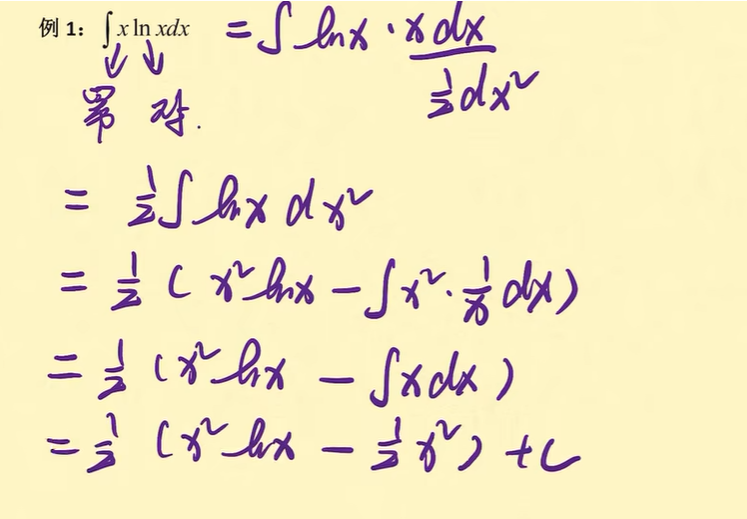 例 1: ∫ x ln x dx = ∫ ln x · x dx
½ dx²
幂 对.
= ½ ∫ ln x d x²
= ½ ( x² ln x − ∫ x² · 1/x dx )
= ½ ( x² ln x − ∫ x dx )
= ½ ( x² ln x − ½ x² ) + C